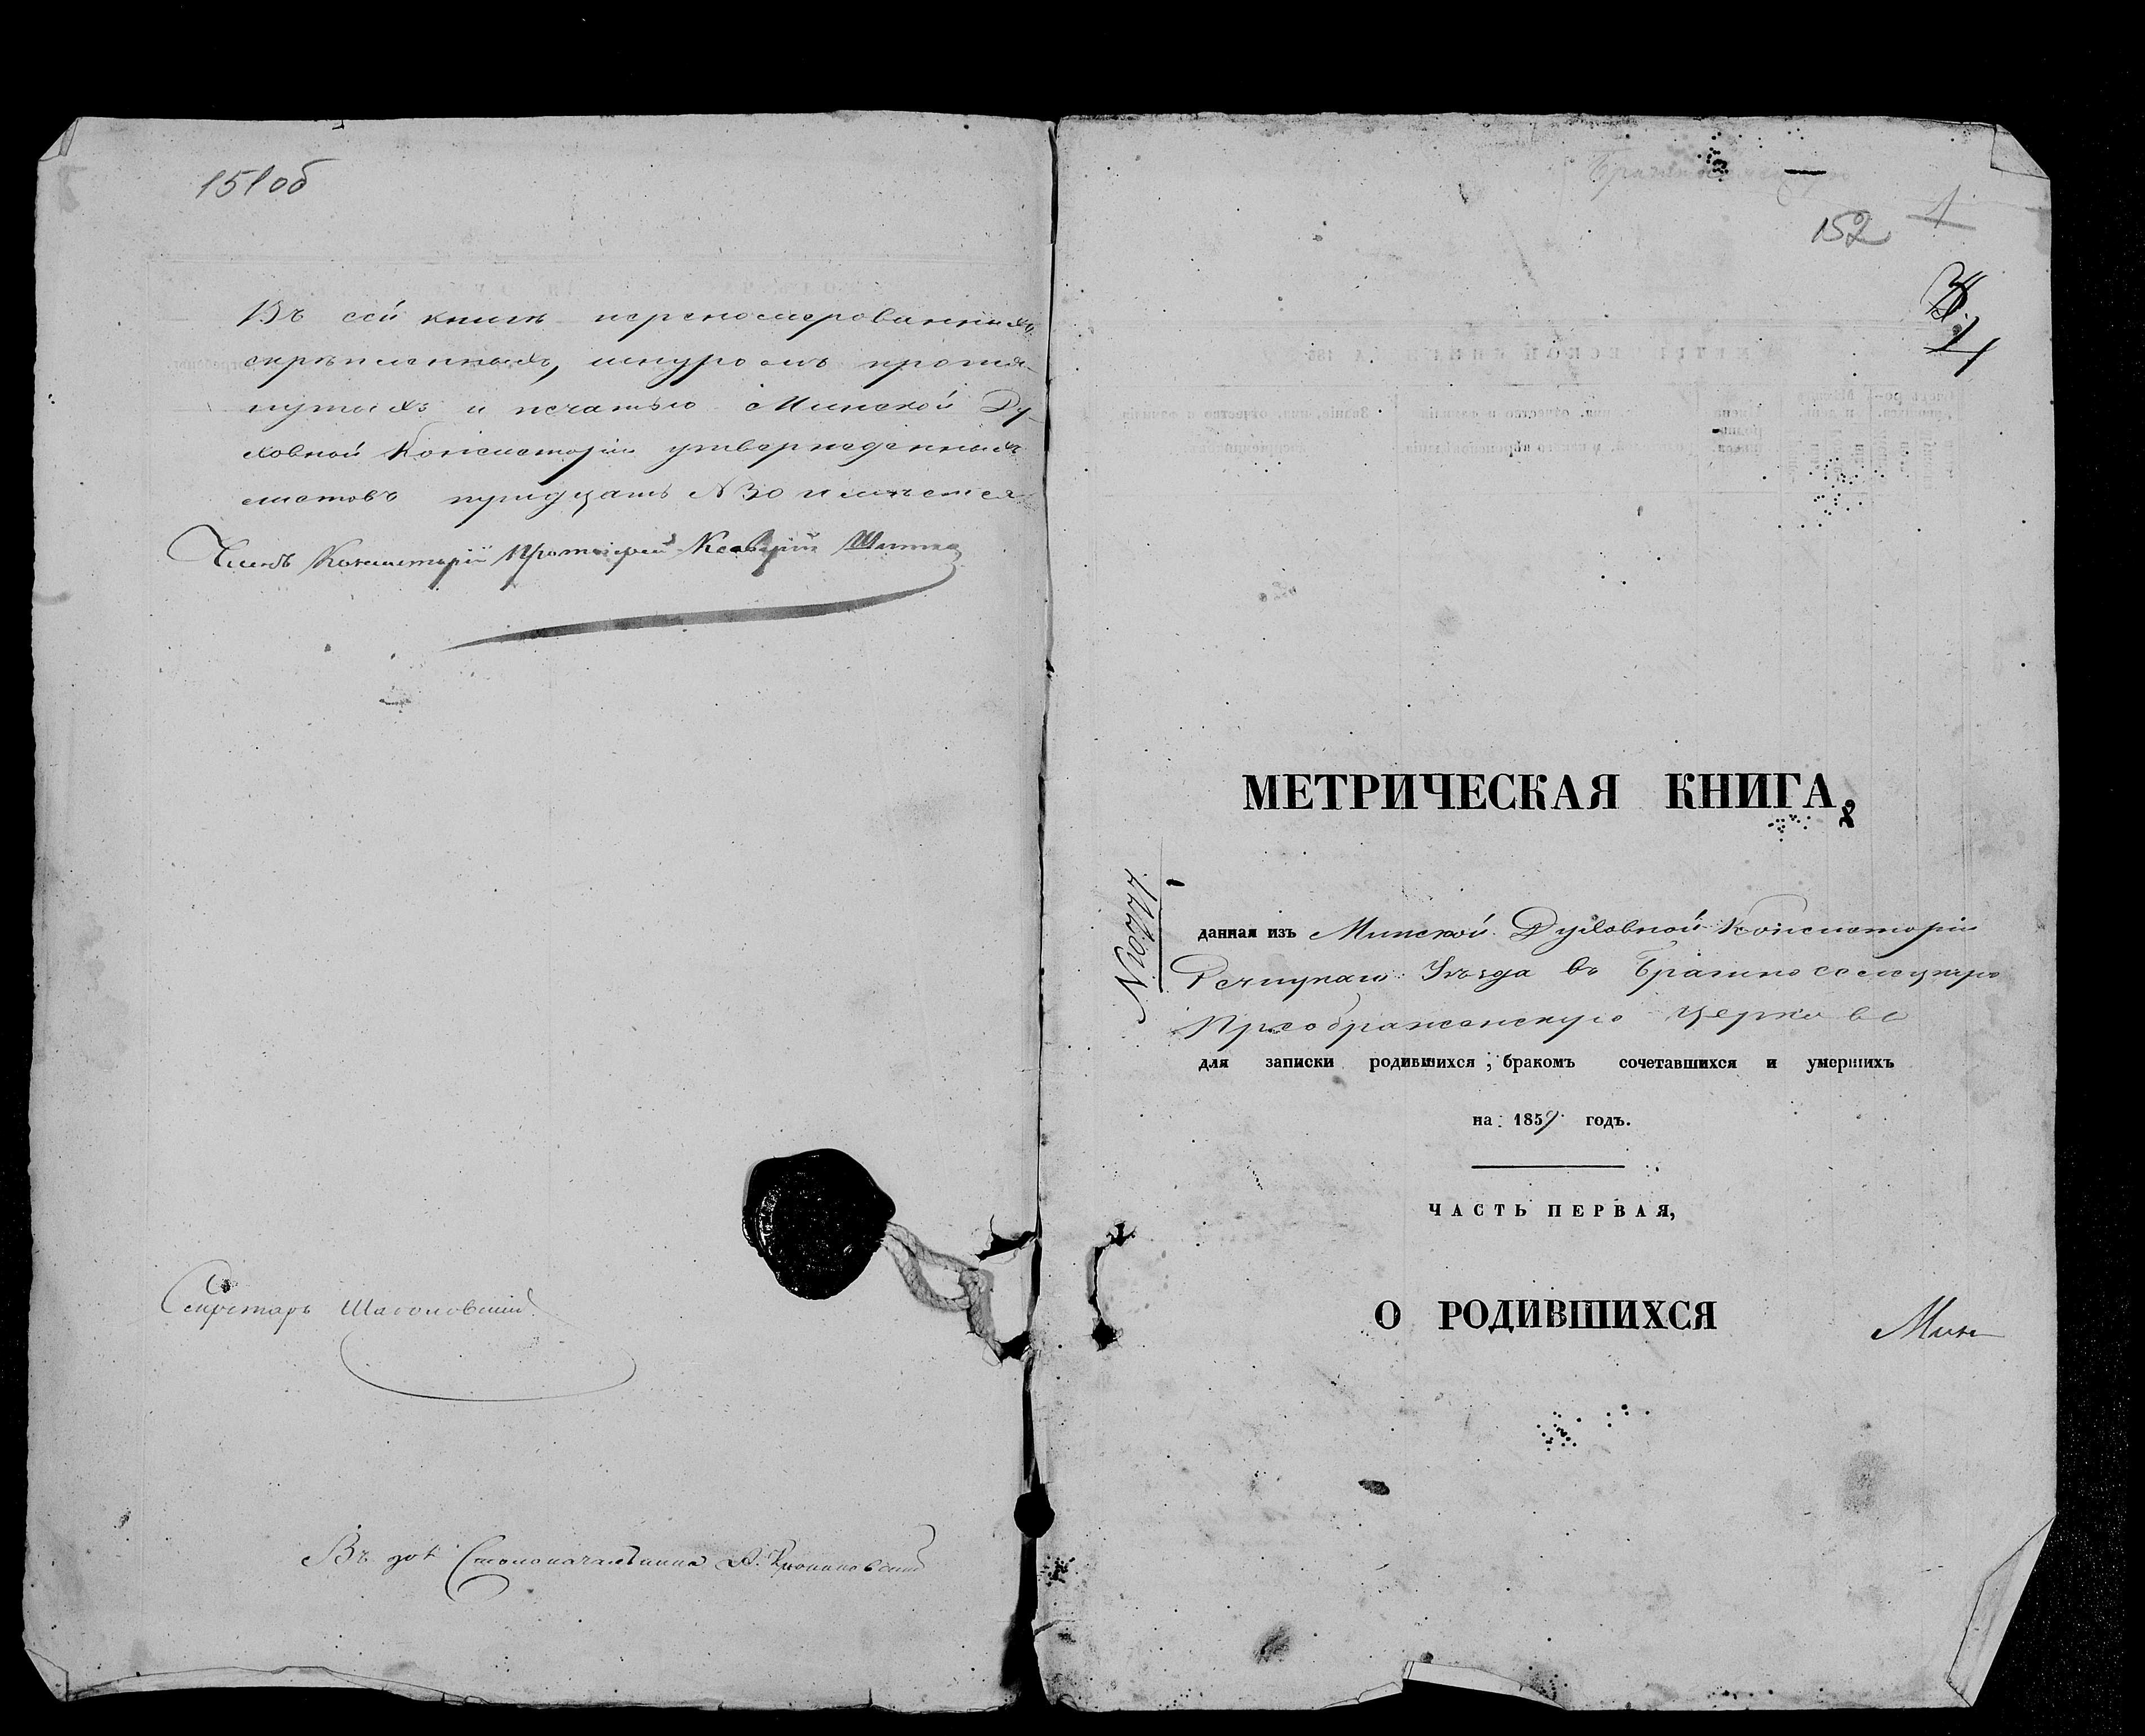 151об
Въ сей книгѣ перепомерованныхъ,
скрѣпленныхъ, шнуромъ протя-
нутыхъ и печатью Минской Ду-
ховной Консисторіи утвержденныхъ
листовъ тридцать №30 имѣется
Членъ Консисторіи Протоіерей
Секретарь
Въ дол Столоначальника
152 1
МЕТРИЧЕСКАЯ КНИГА,
N10777.
данная изъ Минской Духовной Консисторіи
Речицкаго Уѣзда въ
Преображенскую церковь
для записки родившихся, бракомъ сочетавшихся и умершихъ
на 1859 годъ.
ЧАСТЬ ПЕРВАЯ,
О РОДИВШИХСЯ
Мин